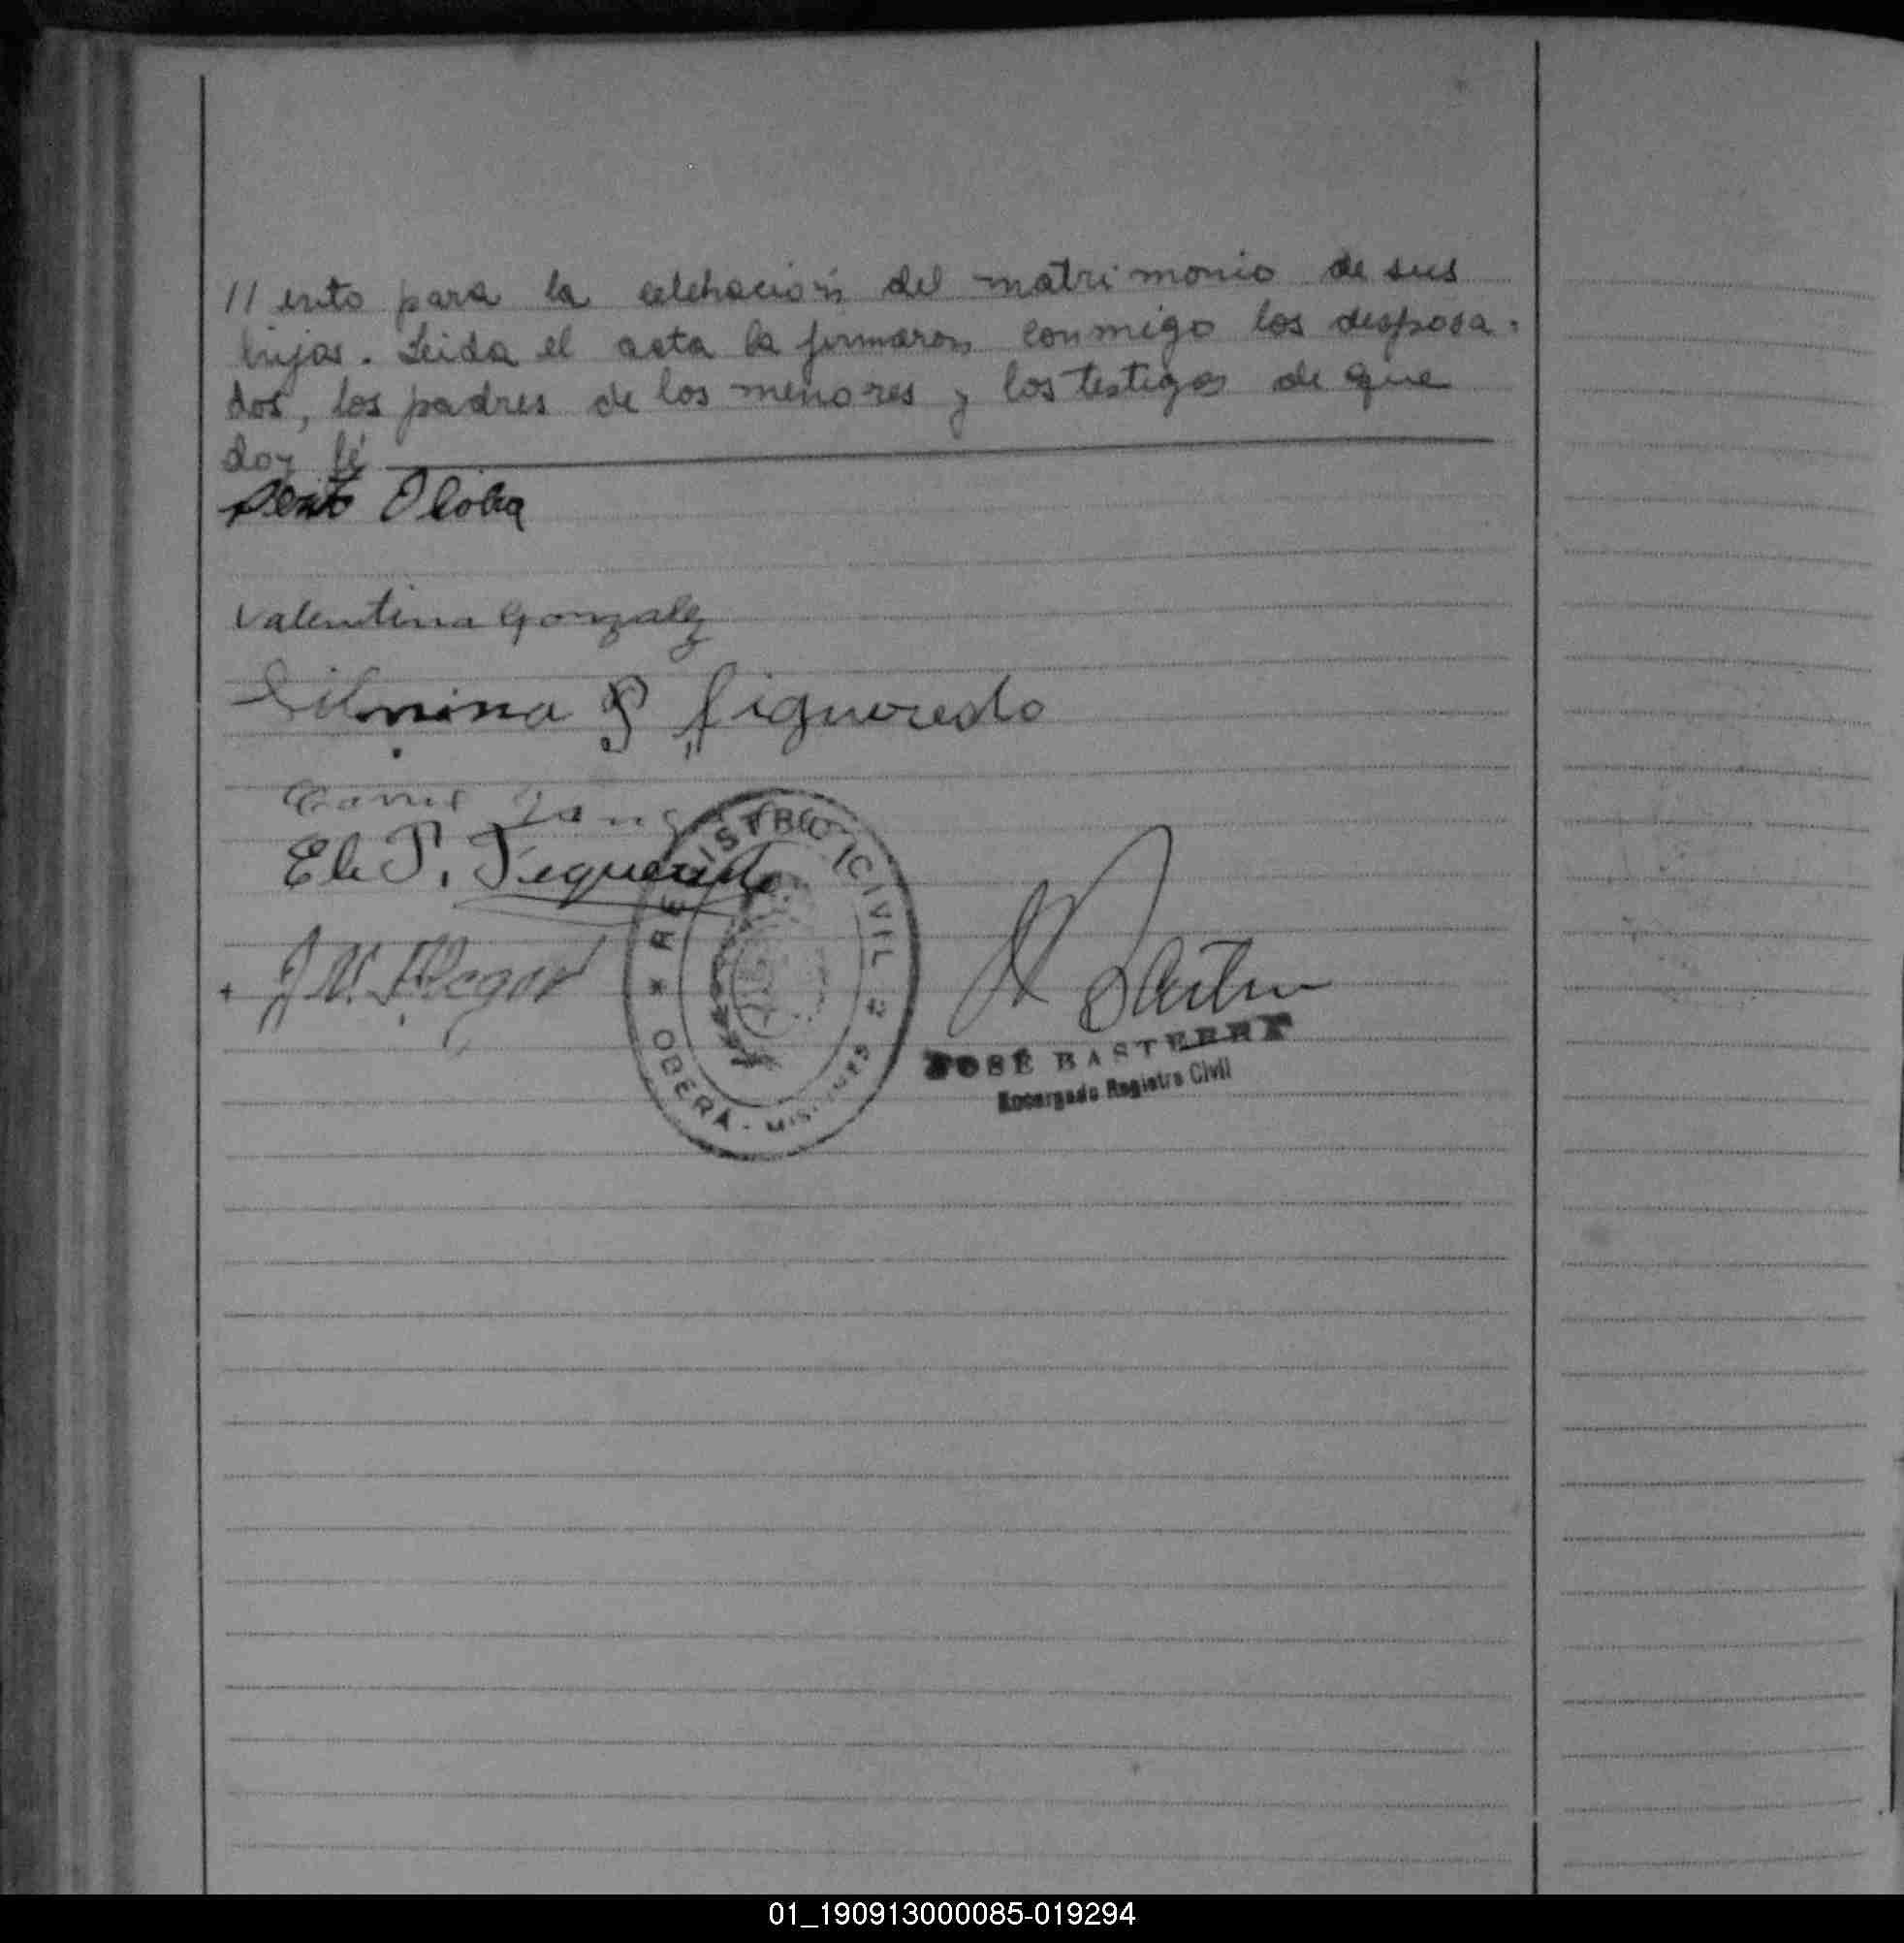 // ento para la celebración del matrimonio de sus
hijos. Leida el acta la firmaron conmigo los desposa-
dos, los padres de los menores y los testigos de que
doy fé
Valentina Gonzalez
figueredo
Eli P. Figueredo
REGISTRO CIVIL
OBERÁ - MISIONES
JOSÉ BASTERRA
Encargado Registro Civil
01_190913000085-019294